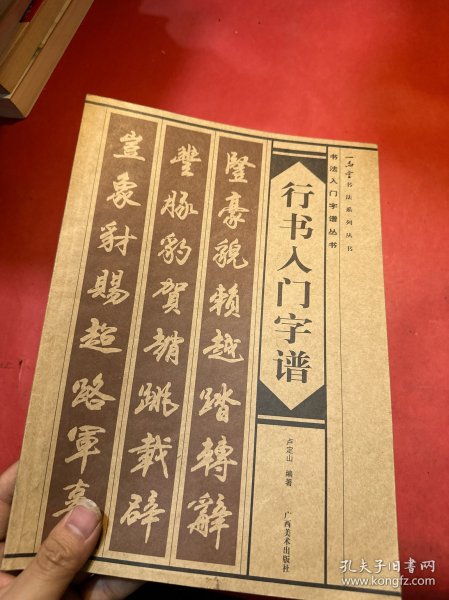 书法系列丛书
书法入门字谱丛书
行书入门字谱
卢定山 编著
广西美术出版社
豎豪貌賴越踏轉辭
豐豚豹賀趙跳載辟
豈象豺賜超路軍
孔夫子旧书网
www.kongfz.com